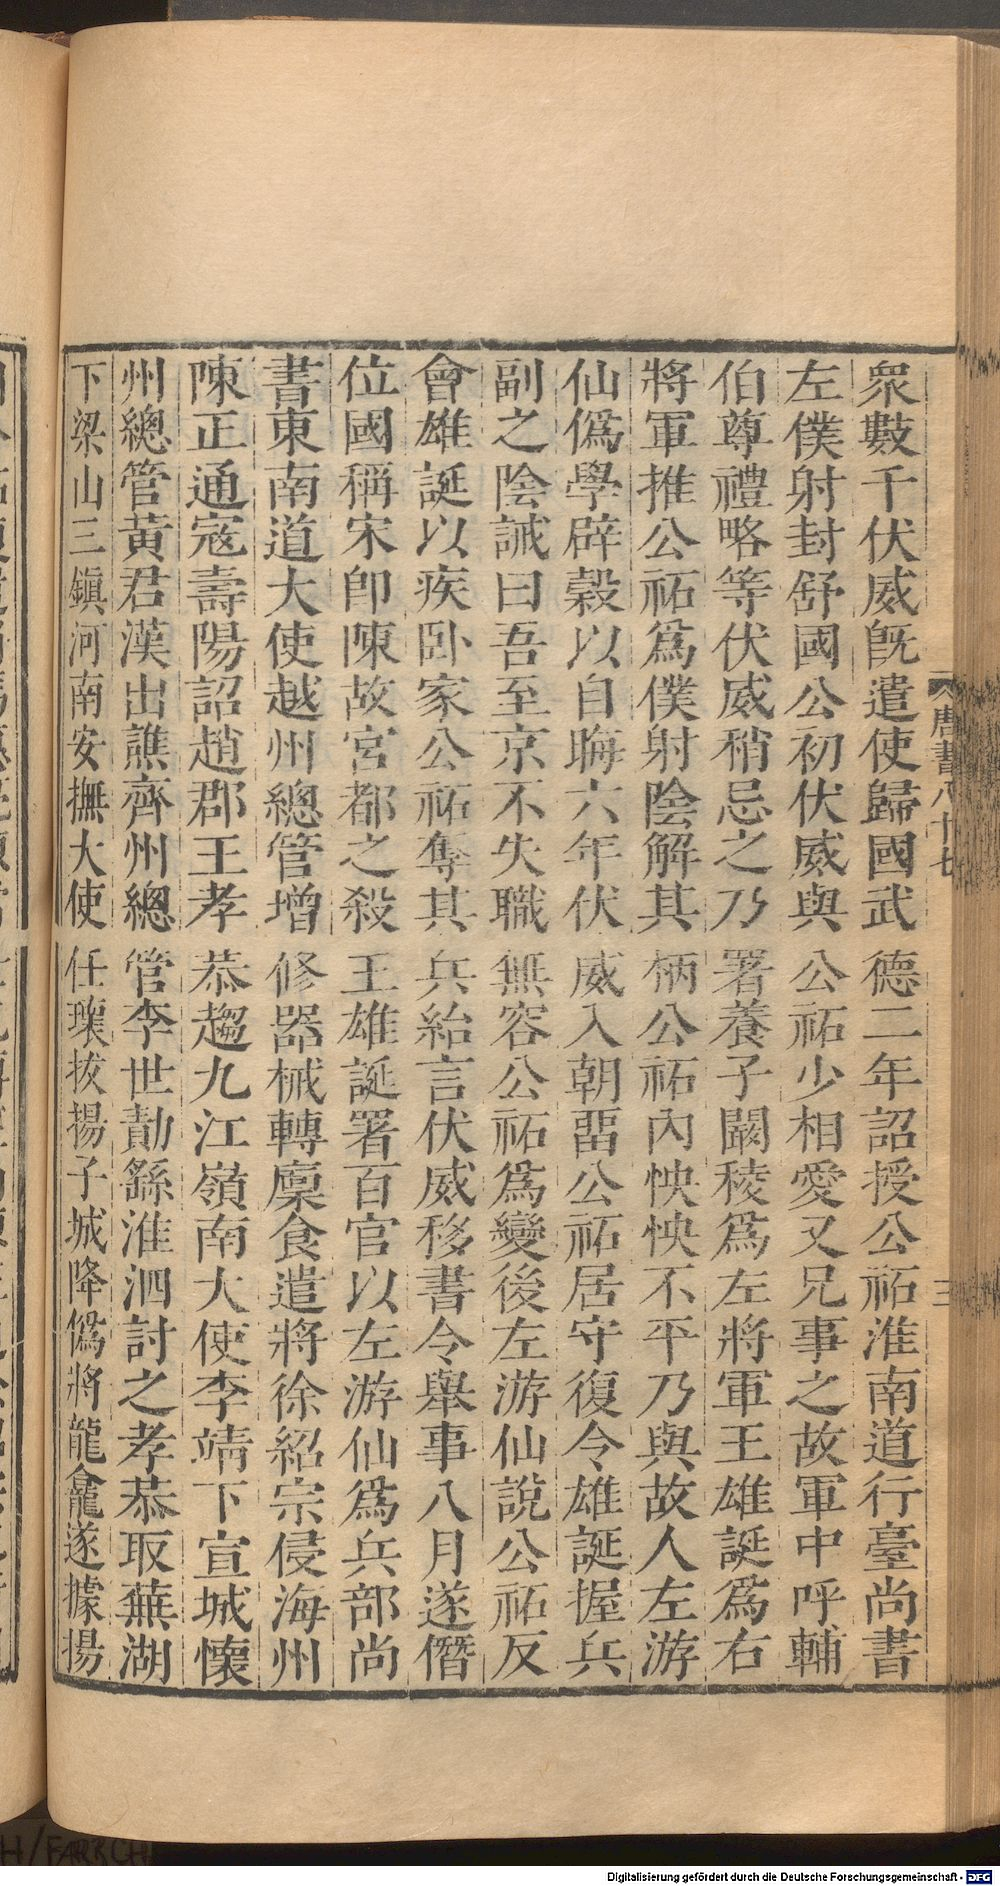 衆數千伏威旣遣使歸國武德二年詔授公祏淮南道行臺尚書
左僕射封舒國公初伏威與公祏少相愛又兄事之故軍中呼輔
伯尊禮略等伏威稍忌之乃署養子闞稜爲左將軍王雄誕爲右
將軍推公祏爲僕射陰解其柄公祏內怏怏不平乃與故人左游
仙僞學辟穀以自晦六年伏威入朝畱公祏居守復令雄誕握兵
副之陰誡曰吾至京不失職無容公祏爲變後左游仙說公祏反
會雄誕以疾卧家公祏奪其兵紿言伏威移書令舉事八月遂僭
位國稱宋卽陳故宮都之殺王雄誕署百官以左游仙爲兵部尚
書東南道大使越州總管增修器械轉廩食遣將徐紹宗侵海州
陳正通寇壽陽詔趙郡王孝恭趨九江嶺南大使李靖下宣城懷
州總管黃君漢出譙齊州總管李世勣繇淮泗討之孝恭取蕪湖
下梁山三鎭河南安撫大使任瓌拔揚子城降僞將龍龕遂據揚
唐書八十七
三
Digitalisierung gefördert durch die Deutsche Forschungsgemeinschaft - DFG